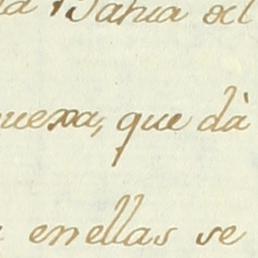 Bahia del
quexa, que dà
en ellas se